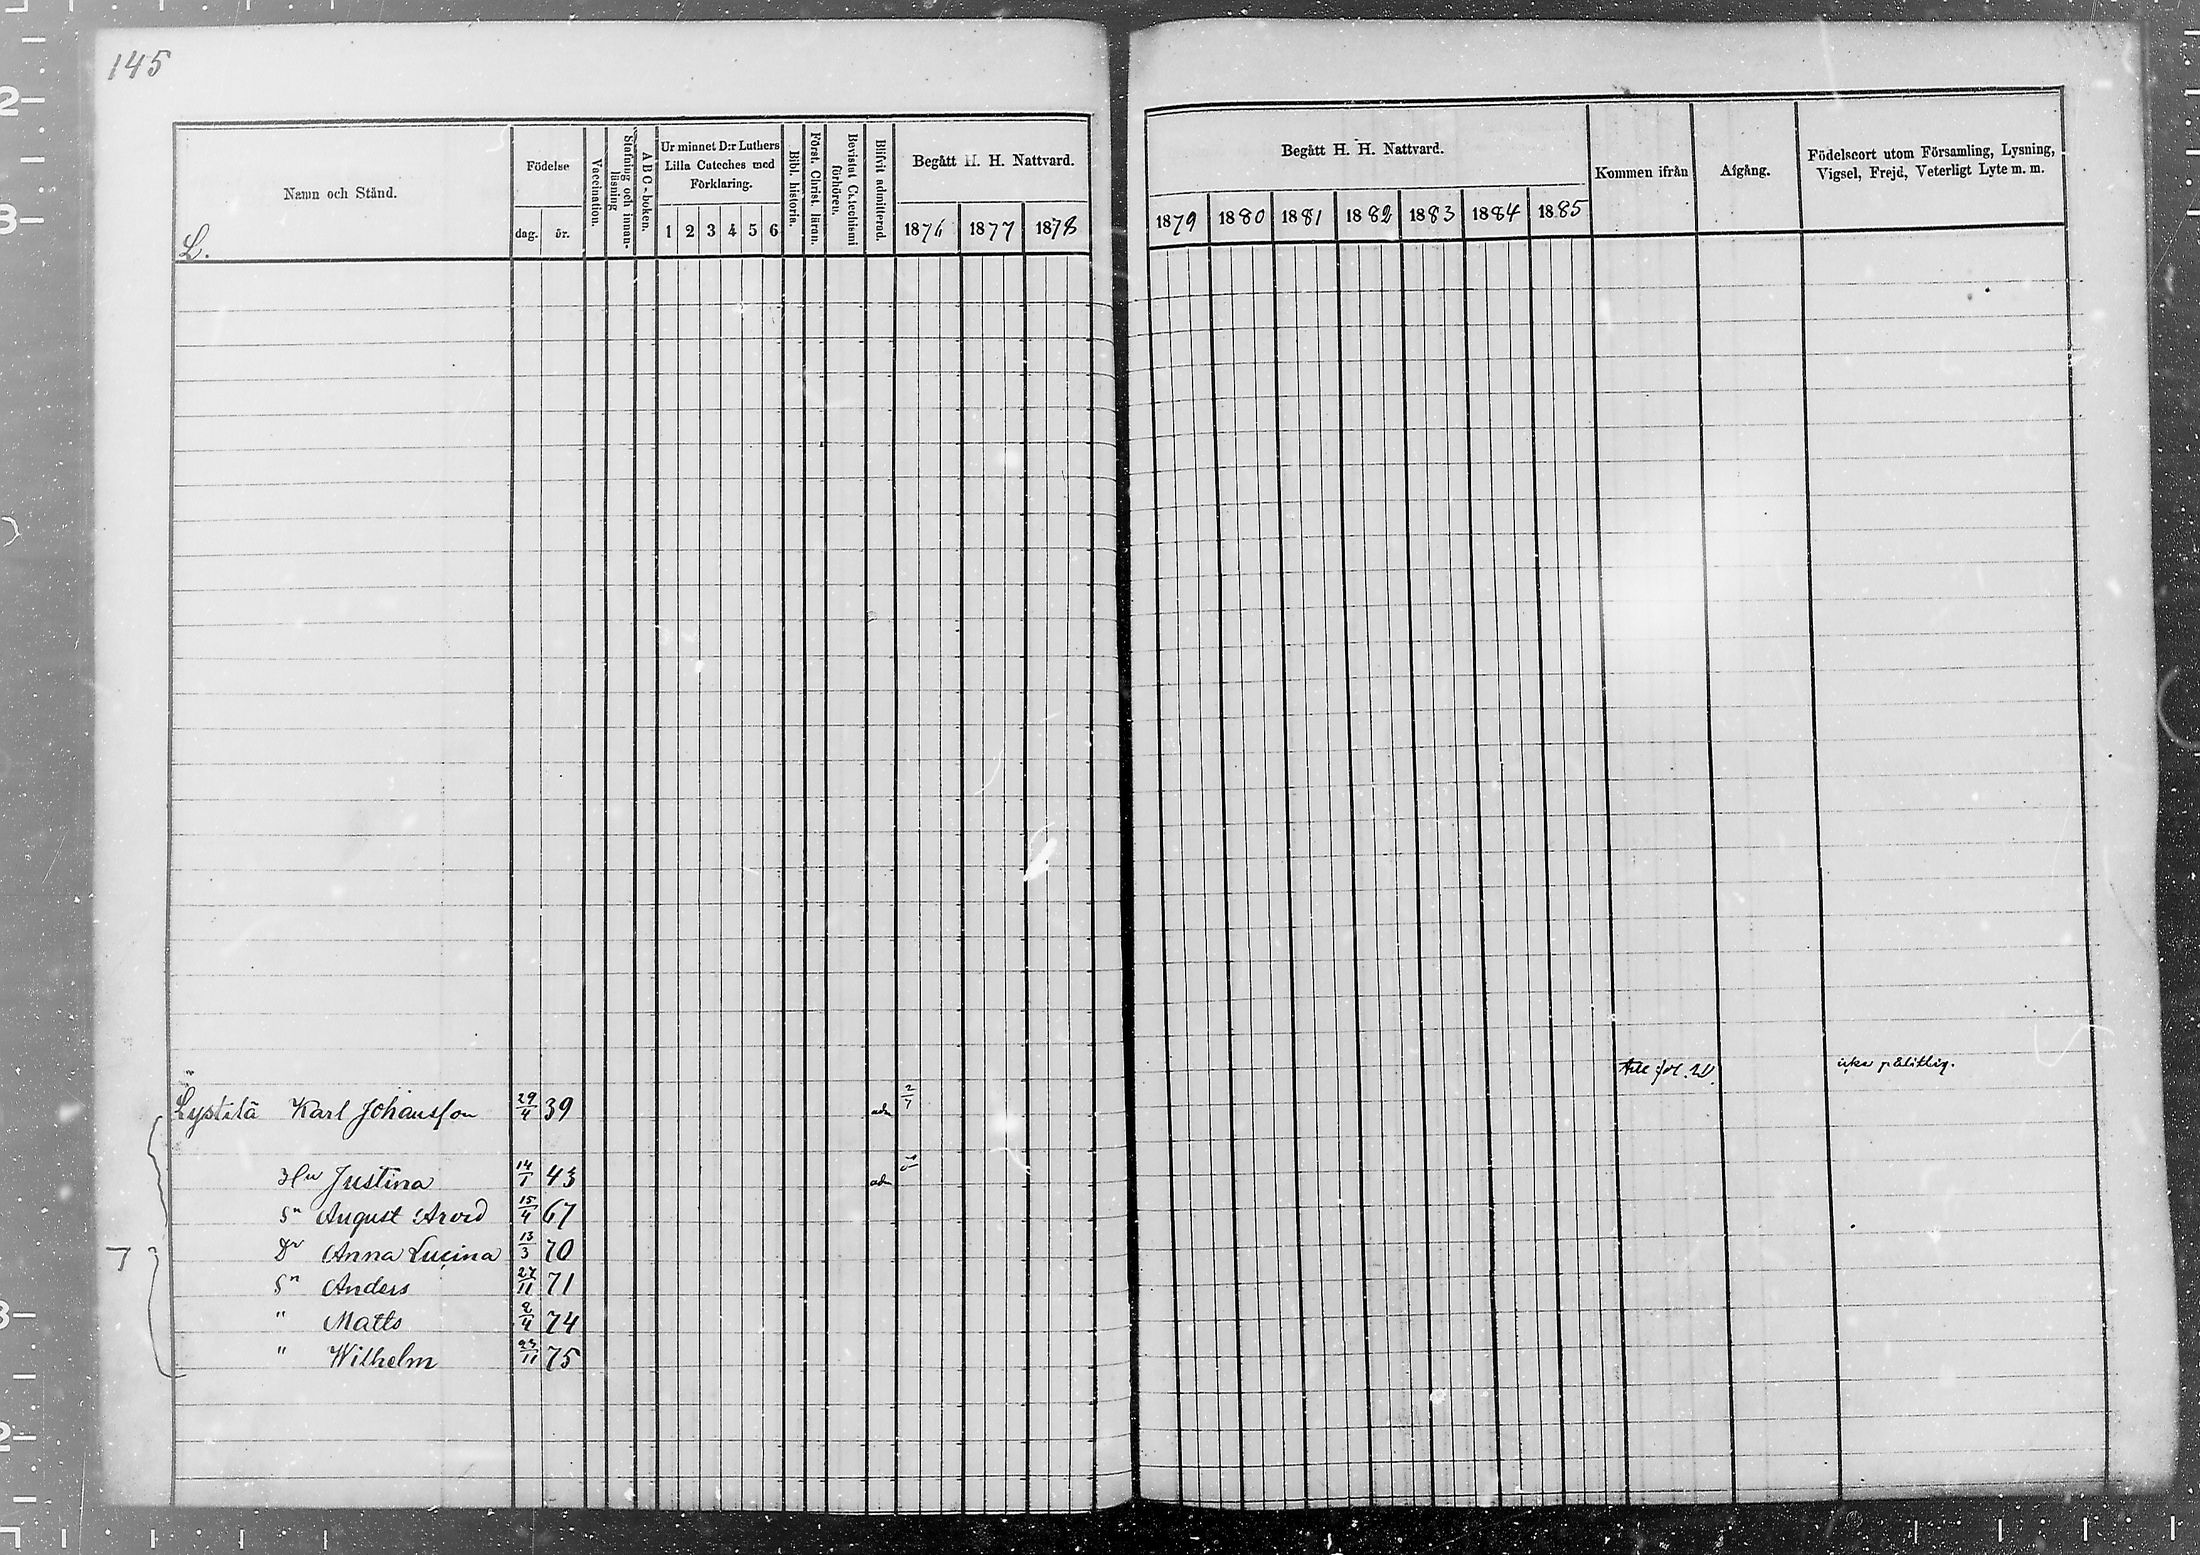 145
Namn och Stånd.
L.
Födelse
dag. år.
Vaccination.
Stafning och innan-läsning
ABC-boken.
Ur minnet D:r Luthers Lilla Cateches med Förklaring.
1 2 3 4 5 6
Bibl. historia.
Först. Christ. läran.
Bevistat Catechismi förhören.
Blifvit admitterad.
Begått H. H. Nattvard.
1876 1877 1878
Begått H. H. Nattvard.
1879 1880 1881 1882 1883 1884 1885
Kommen ifrån
Afgång.
Födelseort utom Församling, Lysning, Vigsel, Frejd, Veterligt Lyte m. m.
"
icke pålitlig.
Lystilä Karl Johansson 29/4 39 adm 2/7
Hu Justina 14/1 43 adm
Sn August Arvid 15/4 67
Dr Anna Lucina 13/3 70
7
Sn Anders 27/11 71
" Matts 2/4 74
" Wilhelm 23/11 75